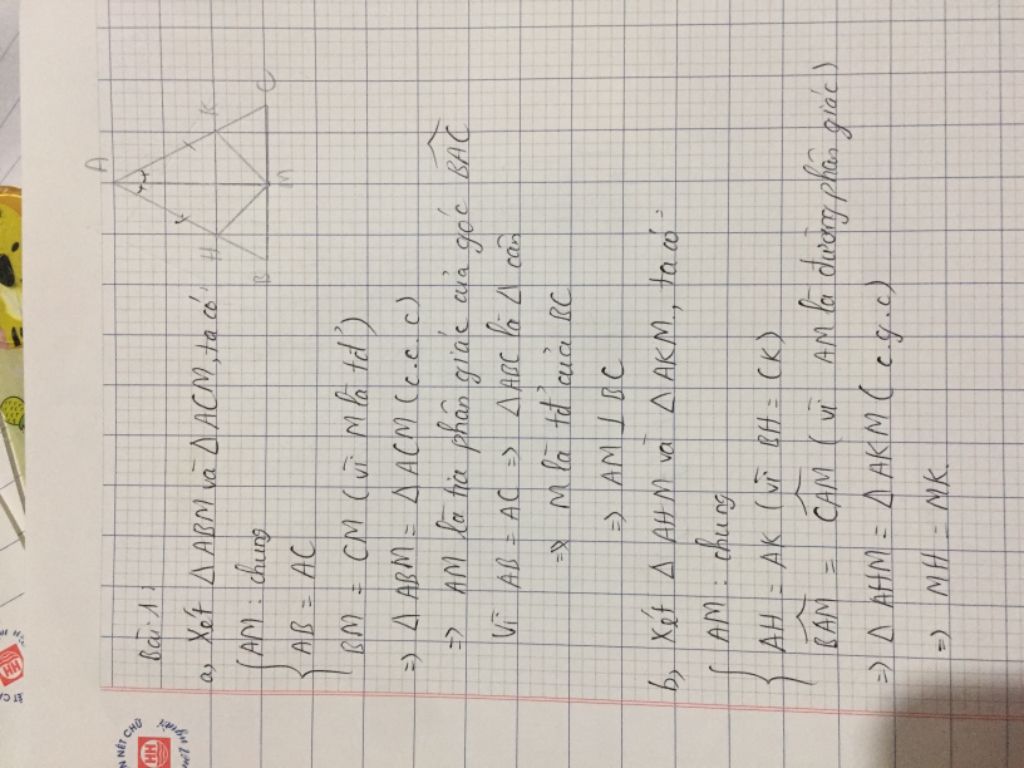 Bài 1:
a, Xét Δ ABM và Δ ACM, ta có:
AM : chung
AB = AC
BM = CM (vì M là tđ')
=> Δ ABM = Δ ACM (c.c.c)
=> AM là tia phân giác của góc BAC
Vì AB = AC => Δ ABC là Δ cân
=> M là tđ' của BC
=> AM ⊥ BC
b, Xét Δ AHM và Δ AKM, ta có:
AM : chung
AH = AK (vì BH = CK)
BAM = CAM (vì AM là đường phân giác)
=> Δ AHM = Δ AKM (c.g.c)
=> MH = MK
A
H
K
B
M
C
NÉT CHỮ
HH
HH